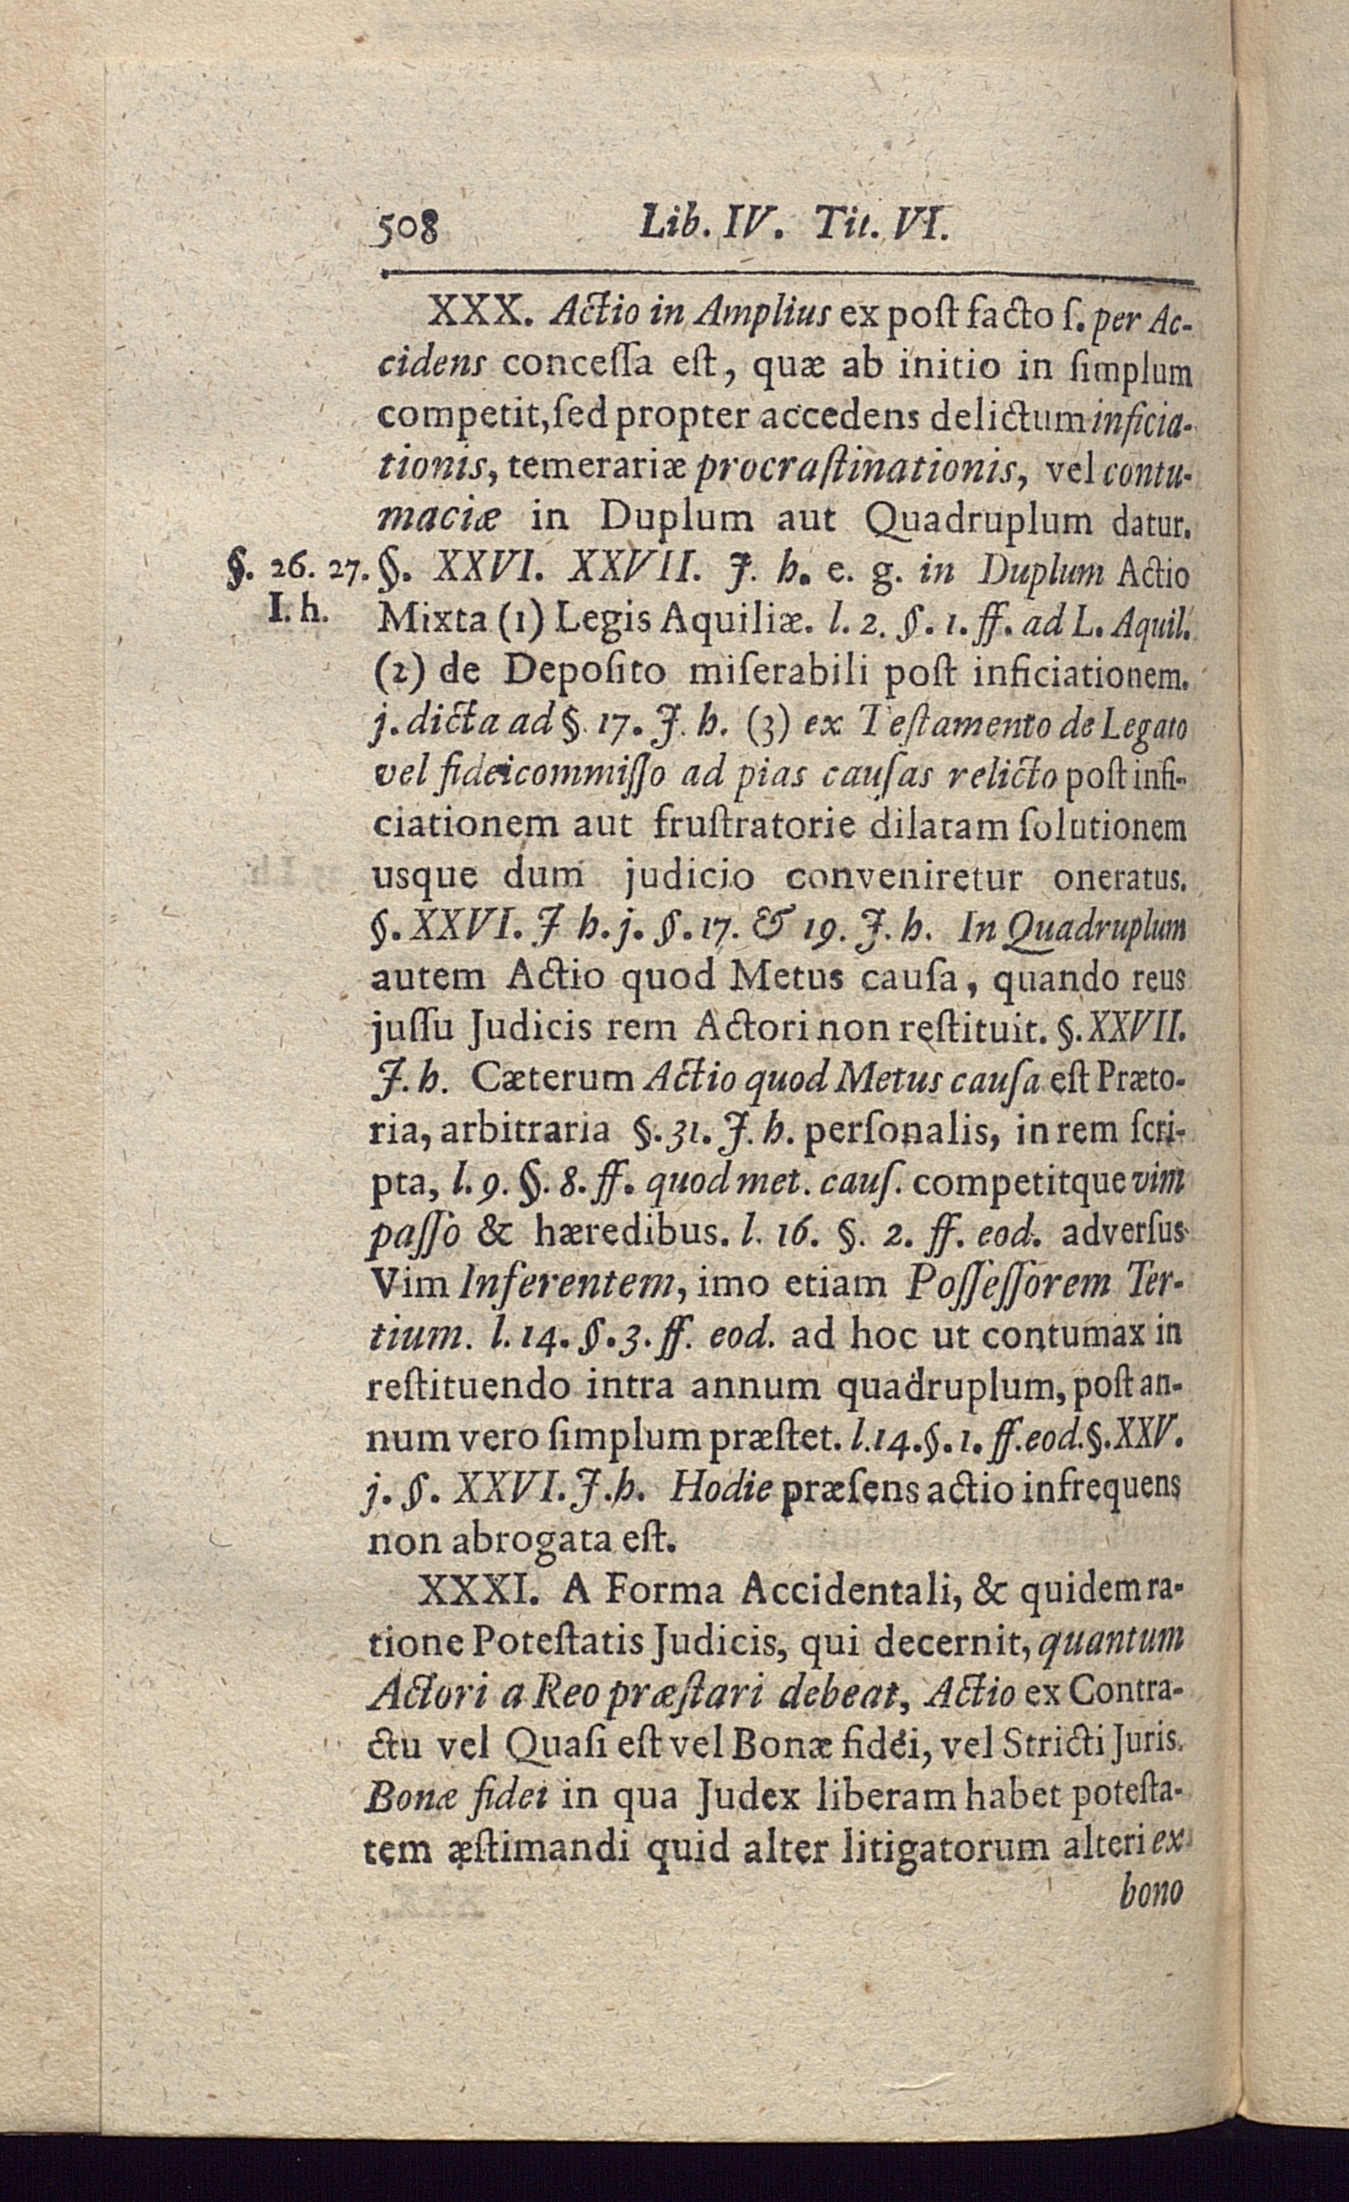 508 Lib. IV. Tit. VI.
XXX. Actio in Amplius ex post facto s. per Ac-
cidens concessa est, quæ ab initio in simplum
competit, sed propter accedens delictum inficia-
tionis, temerariæ procrastinationis, vel contu-
maciæ in Duplum aut Quadruplum datur.
§. 26. 27. §. XXVI. XXVII. J. h. e. g. in Duplum Actio
I. h. Mixta (1) Legis Aquiliæ. l. 2. §. 1. ff. ad L. Aquil.
(2) de Deposito miserabili post inficiationem.
j. dicta ad §. 17. J. h. (3) ex Testamento de Legato
vel fideicommisso ad pias causas relicto post infi-
ciationem aut frustratorie dilatam solutionem
usque dum judicio conveniretur oneratus.
§. XXVI. J h. j. §. 17. & 19. J. h. In Quadruplum
autem Actio quod Metus causa, quando reus
jussu Judicis rem Actori non restituit. §. XXVII.
J. h. Cæterum Actio quod Metus causa est Præto-
ria, arbitraria §. 31. J. h. personalis, in rem scri-
pta, l. 9. §. 8. ff. quod met. caus. competitque vim
passo & hæredibus. l. 16. §. 2. ff. eod. adversus
Vim Inferentem, imo etiam Possessorem Ter-
tium. l. 14. §. 3. ff. eod. ad hoc ut contumax in
restituendo intra annum quadruplum, post an-
num vero simplum præstet. l. 14. §. 1. ff. eod. §. XXV.
j. §. XXVI. J. h. Hodie præsens actio infrequens
non abrogata est.
XXXI. A Forma Accidentali, & quidem ra-
tione Potestatis Judicis, qui decernit, quantum
Actori a Reo præstari debeat, Actio ex Contra-
ctu vel Quasi est vel Bonæ fidei, vel Stricti Juris.
Bonæ fidei in qua Judex liberam habet potesta-
tem æstimandi quid alter litigatorum alteri ex
bono